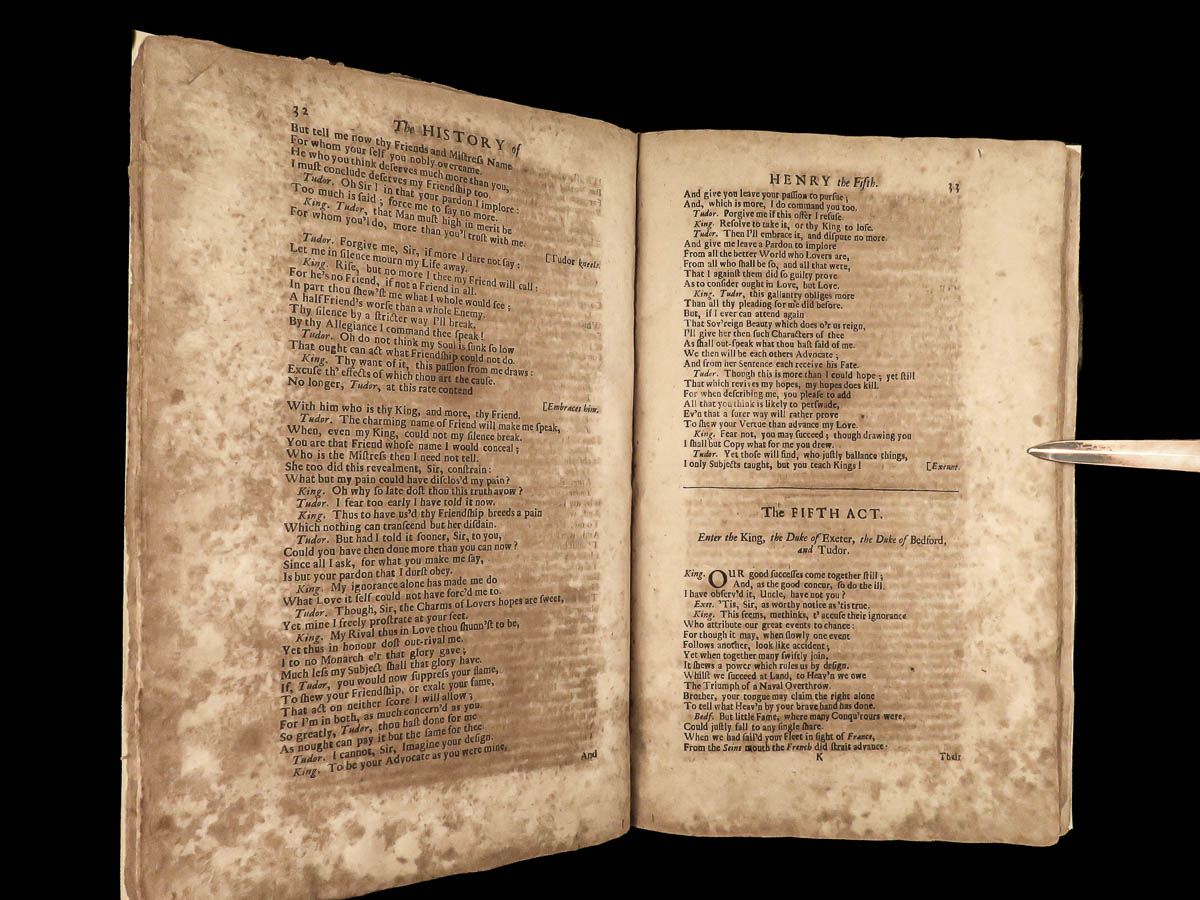 32
The HISTORY of
But tell me now thy Friends and Miſtreſs Name
For whom your ſelf you nobly overcame.
He who you think deſerves much more than you,
I muſt conclude deſerves my Friendſhip too.
Tudor. Oh Sir! in that your pardon I implore:
Too much is ſaid; force me to ſay no more.
King. Tudor, that Man muſt high in merit be
For whom you'l do, more than you'l truſt with me.
[Tudor kneels.
Tudor. Forgive me, Sir, if more I dare not ſay:
Let me in ſilence mourn my Life away.
King. Riſe, but no more I thee my Friend will call:
For he's no Friend, if not a Friend in all.
In part thou ſhew'ſt me what I whole would ſee;
A half Friend's worſe than a whole Enemy.
Thy ſilence by a ſtricter way I'll break,
By thy Allegiance I command thee ſpeak!
Tudor. Oh do not think my Soul is ſunk ſo low
That ought can act what Friendſhip could not do.
King. Thy want of it, this paſſion from me draws:
Excuſe th' effects of which thou art the cauſe.
No longer, Tudor, at this rate contend
With him who is thy King, and more, thy Friend. [Embraces him.
Tudor. The charming name of Friend will make me ſpeak,
When, even my King, could not my ſilence break.
You are that Friend whoſe name I would conceal;
Who is the Miſtreſs then I need not tell.
She too did this revealment, Sir, conſtrain:
What but my pain could have diſclos'd my pain?
King. Oh why ſo late doſt thou this truth avow?
Tudor. I fear too early I have told it now.
King. Thus to have us'd thy Friendſhip breeds a pain
Which nothing can tranſcend but her diſdain.
Tudor. But had I told it ſooner, Sir, to you,
Could you have then done more than you can now?
Since all I ask, for what you make me ſay,
Is but your pardon that I durſt obey.
King. My ignorance alone has made me do
What Love it ſelf could not have forc'd me to.
Tudor. Though, Sir, the Charms of Lovers hopes are ſweet,
Yet mine I freely proſtrate at your feet.
King. My Rival thus in Love thou ſhunn'ſt to be,
Yet thus in honour doſt out-rival me.
I to no Monarch e'r that glory gave;
Much leſs my Subject ſhall that glory have.
If, Tudor, you would now ſuppreſs your flame,
To ſhew your Friendſhip, or exalt your fame,
That act on neither ſcore I will allow;
For I'm in both, as much concern'd as you.
So greatly, Tudor, thou haſt done for me
As nought can pay it but the ſame for thee.
Tudor. I cannot, Sir, Imagine your deſign.
King. To be your Advocate as you were mine,
And
HENRY the Fifth.
33
And give you leave your paſſion to purſue;
And, which is more, I do command you too.
Tudor. Forgive me if this offer I refuſe.
King. Reſolve to take it, or thy King to loſe.
Tudor. Then I'll embrace it, and diſpute no more.
And give me leave a Pardon to implore
From all the better World who Lovers are,
From all who ſhall be ſo, and all that were,
That I againſt them did ſo guilty prove
As to conſider ought in Love, but Love.
King. Tudor, this gallantry obliges more
Than all thy pleading for me did before.
But, if I ever can attend again
That Sov'reign Beauty which does o'r us reign,
I'll give her then ſuch Characters of thee
As ſhall out-ſpeak what thou haſt ſaid of me.
We then will be each others Advocate;
And from her Sentence each receive his Fate.
Tudor. Though this is more than I could hope; yet ſtill
That which revives my hopes, my hopes does kill.
For when deſcribing me, you pleaſe to add
All that you think is likely to perſwade,
Ev'n that a ſurer way will rather prove
To ſhew your Vertue than advance my Love.
King. Fear not, you may ſucceed; though drawing you
I ſhall but Copy what for me you drew.
Tudor. Yet thoſe will find, who juſtly ballance things,
I only Subjects taught, but you teach Kings! [Exeunt.
The FIFTH ACT.
Enter the King, the Duke of Exeter, the Duke of Bedford,
and Tudor.
King. OUR good ſucceſſes come together ſtill;
And, as the good concur, ſo do the ill.
I have obſerv'd it, Uncle, have not you?
Exet. 'Tis, Sir, as worthy notice as 'tis true.
King. This ſeems, methinks, t' accuſe their ignorance
Who attribute our great events to chance:
For though it may, when ſlowly one event
Follows another, look like accident;
Yet when together many ſwiftly join,
It ſhews a power which rules us by deſign.
Whilſt we ſucceed at Land, to Heav'n we owe
The Triumph of a Naval Overthrow.
Brother, your tongue may claim the right alone
To tell what Heav'n by your brave hand has done.
Bedf. But little Fame, where many Conqu'rours were,
Could juſtly fall to any ſingle ſhare.
When we had ſail'd your Fleet in ſight of France,
From the Seins mouth the French did ſtrait advance:
K
Their